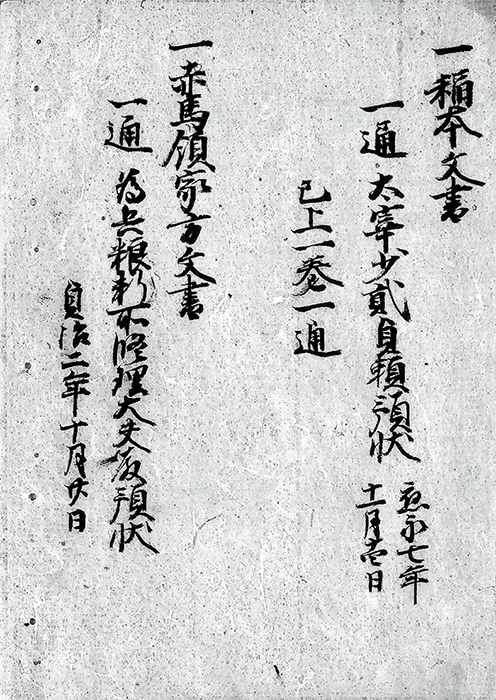 一稲本文書
一通 太宰少貳貞頼預状 応永七年
十一月壱日
已上一巻一通
一赤馬領家方文書
一通 為兵粮料所修理大夫殿預状
貞治二年十月廿日